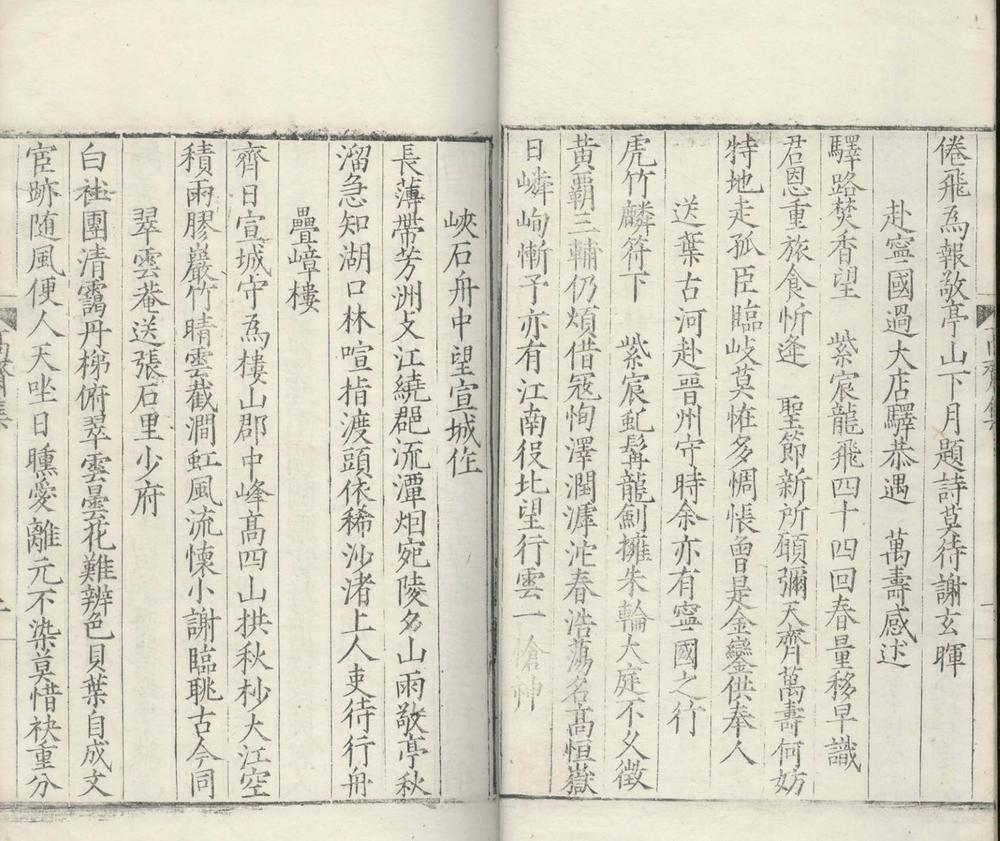 倦飛為報敬亭山下月題詩莫待謝玄暉
赴寧國過大店驛恭遇 萬壽感述
驛路焚香望 紫宸龍飛四十四回春量移早識
君恩重旅食忻逢 聖節新所願彌天齊萬壽何妨
特地走孤臣臨岐莫恠多惆悵曾是金鑾供奉人
送葉古河赴晋州守時余亦有寧國之行
虎竹麟符下 紫宸虬髯龍劍擁朱輪大庭不久徵
黄覇三輔仍煩借寇恂澤潤滹沱春浩蕩名髙恒嶽
日嶙峋慚予亦有江南役北望行雲一愴神
峽石舟中望宣城作
長薄帶芳洲攴江繞郡流潭烟宛陵夕山雨敬亭秋
溜急知湖口林喧指渡頭依稀沙渚上人吏待行舟
疊嶂樓
齊日宣城守為樓山郡中峰髙四山拱秋杪大江空
積雨膠巖竹晴雲截澗虹風流懷小謝臨眺古今同
翠雲菴送張石里少府
白社團清靄丹梯俯翠雲曇花難辨色貝葉自成文
宦跡随風便人天坐日曛愛離元不染莫惜袂重分